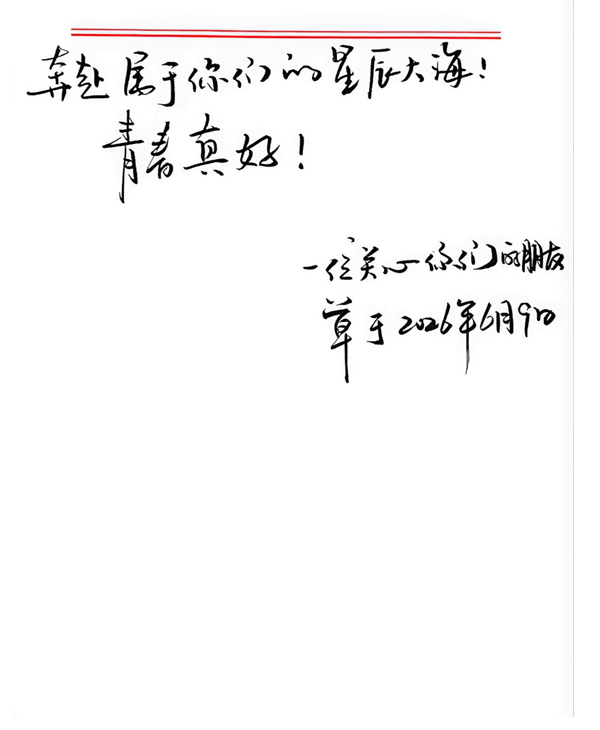 奔赴属于你们的星辰大海！
青春真好！
一位关心你们的朋友
草于2026年6月9日